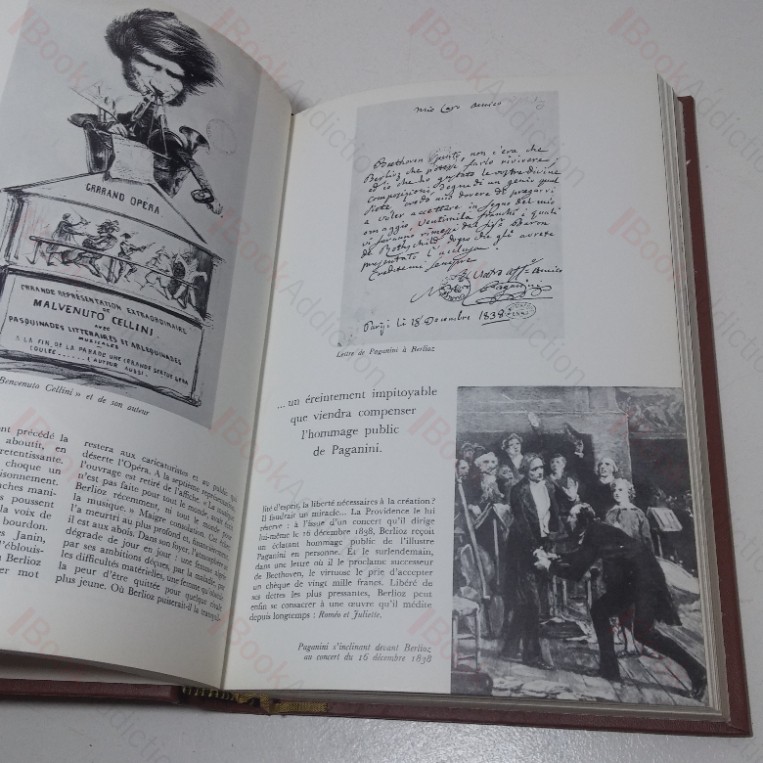 GRRRAND OPÉRA
GRRANDE REPRÉSENTATION EXTRAORDINAIRE
DE
MALVENUTO CELLINI
AVEC
PASQUINADES LITTERAIRES ET ARLEQUINADES
MUSICALES
A LA FIN DE LA PARADE UNE GRANDE
L'AUTEUR AUSSI
Benvenuto Cellini » et de son auteur
ont précédé la
aboutit, en
retentissante.
choque un
isonnement.
nches mani-
s poussent
la voix de
bourdon.
es Janin,
l'éblouis-
Berlioz
er mot
restera aux caricaturistes et au public qui
déserte l'Opéra. A la septième représentation,
l'ouvrage est retiré de l'affiche. « La
n'est pas faite pour tout le monde, avait écrit
Berlioz récemment, ni tout le monde pour
la musique. » Maigre consolation. Cet échec
l'a meurtri au plus profond et,
il est aux abois. Dans son foyer, l'atmosphère se
dégrade de jour en jour : une femme aigrie
par ses ambitions déçues, par la maladie, par
les difficultés matérielles, une femme qu'obsède
la peur d'être quittée pour quelque rivale
plus jeune. Où Berlioz puiserait-il la
Mio Caro Amico
Beethoven spento, non c'era che
Berlioz che potesse farlo rivivere;
ed io che ho gustato le vostre divine
composizioni degne di un genio qual
siete, credo mio dovere di pregarvi
a voler accettare in segno del mio
omaggio, ventimila franchi, i quali
vi saranno rimessi dal Sigr Baron
de Rothschild dopo che gli avrete
presentato l'acclusa.
Credetemi sempre
il Vostro aff.º Amico
Paganini
Parigi Li 18 Decembre 1838
Lettre de Paganini à Berlioz
...un éreintement impitoyable
que viendra compenser
l'hommage public
de Paganini.
lité d'esprit, la liberté nécessaires à la création ?
Il faudrait un miracle... La Providence le lui
réserve : à l'issue d'un concert qu'il dirige
lui-même le 16 décembre 1838, Berlioz reçoit
un éclatant hommage public de l'illustre
Paganini en personne. Et le surlendemain,
dans une lettre où il le proclame successeur
de Beethoven, le virtuose le prie d'accepter
un chèque de vingt mille francs. Libéré de
ses dettes les plus pressantes, Berlioz peut
enfin se consacrer à une œuvre qu'il médite
depuis longtemps : Roméo et Juliette.
Paganini s'inclinant devant Berlioz
au concert du 16 décembre 1838
BookAddiction